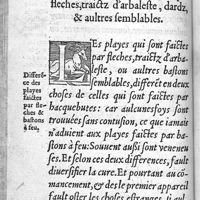 fleches, traictz d'arbaleste, dardz,
& aultres semblables.
LEs playes qui sont faictes
par fleches, traictz d'arba-
leste, ou aultres bastons
semblables, differẽt en deux
choses de celles qui sont faictes par
hacquebutes: car aulcunesfoys sont
trouuées sans contusion, ce que iamais
n'aduient aux playes faictes par ba-
stons à feu: Souuent aussi sont veneneu
ses. Et selon ces deux differences, fault
diuersifier la cure. Et pourtant au cõ-
mancement, & des le premier appareil
fault oster les choses estranges, si au-
Differẽ
ce des
playes
faictes
par fle
ches &
bastons
à feu,